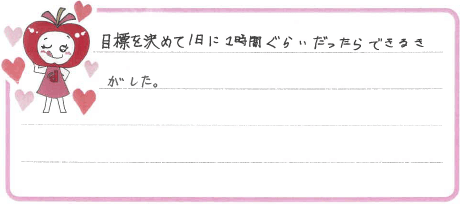 目標を決めて1日に1時間ぐらいだったらできるき
がした。